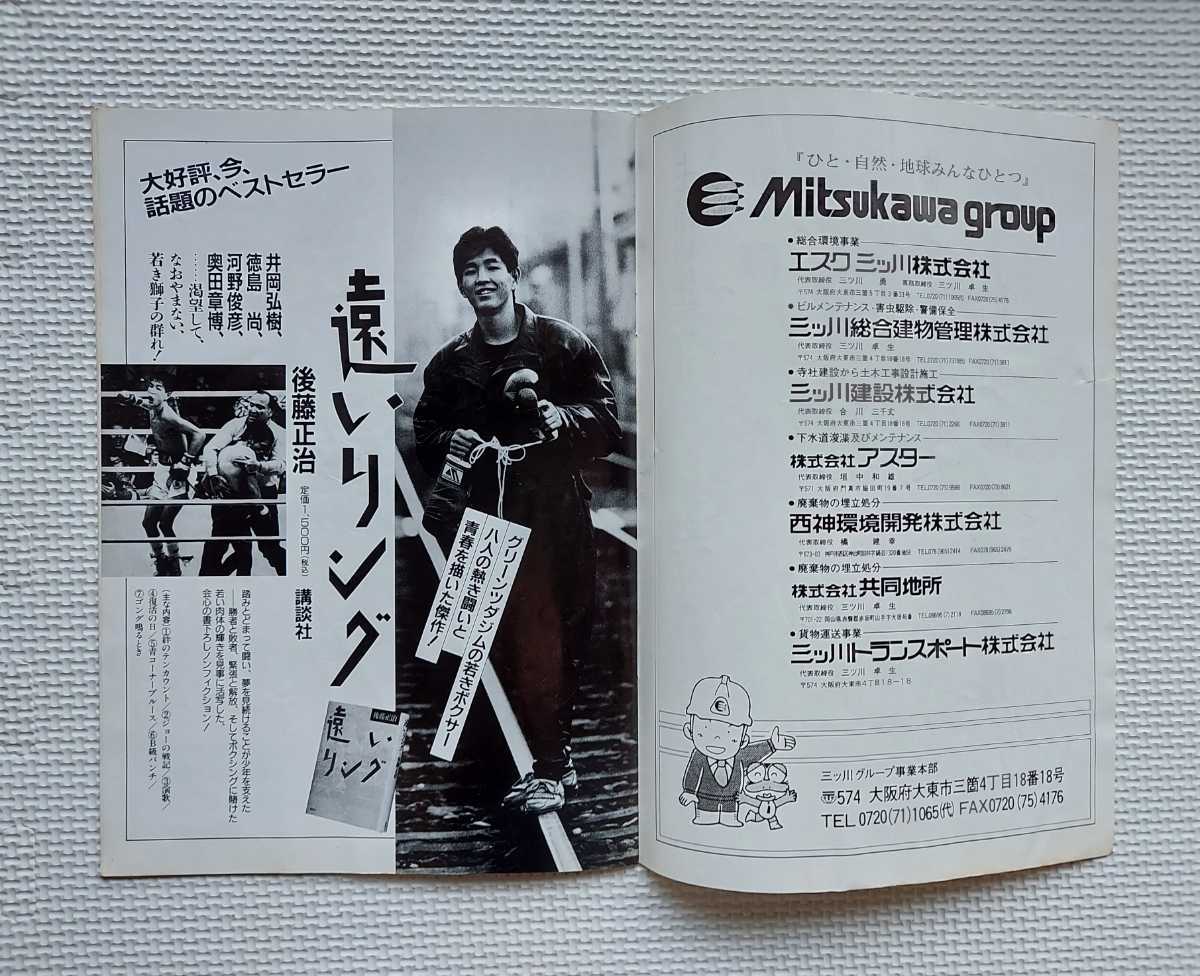 大好評、今、
話題のベストセラー
井岡弘樹、
徳島 尚、
河野俊彦、
奥田章博、
……渇望して、
なおやまない、
若き獅子の群れ!
遠いリング
後藤正治
定価1、500円(税込)
講談社
グリーンツダジムの若きボクサー
八人の熱き闘いと
青春を描いた傑作!
踏みとどまって闘い、夢を見続けることが少年を支えた
――勝者と敗者、緊張と解放、そしてボクシングに賭けた
若い肉体の輝きを見事に活写した、
会心の書下ろしノンフィクション!
〈主な内容〉①絆のテンカウント/②ジョーの戦記/③演歌/
④復活の日/⑤青コーナーブルース/⑥B級パンチ/
⑦ゴング鳴るとき
後藤正治
遠い
リング
『ひと・自然・地球みんなひとつ』
Mitsukawa group
●総合環境事業
エスク三ッ川株式会社
代表取締役 三ツ川 勇 専務取締役 三ツ川 卓生
〒574 大阪府大東市三箇5丁目3番33号
●ビルメンテナンス・害虫駆除・警備保全
三ッ川総合建物管理株式会社
代表取締役 三ツ川 卓生
〒574 大阪府大東市三箇4丁目18番18号
●寺社建設から土木工事設計施工
三ッ川建設株式会社
代表取締役 合川 三千丈
〒574 大阪府大東市三箇4丁目18番18号 TEL0720(71)2260 FAX0720(71)3811
●下水道浚渫及びメンテナンス
株式会社アスター
代表取締役 垣中和雄
〒571 大阪府門真市脇田町19番7号
●廃棄物の埋立処分
西神環境開発株式会社
代表取締役 橘 健幸
●廃棄物の埋立処分
株式会社共同地所
代表取締役 三ツ川 卓生
●貨物運送事業
三ッ川トランスポート株式会社
代表取締役 三ツ川 卓生
〒574 大阪府大東市三箇4丁目18-18
三ッ川グループ事業本部
〒574 大阪府大東市三箇4丁目18番18号
TEL 0720(71)1065(代) FAX0720(75)4176